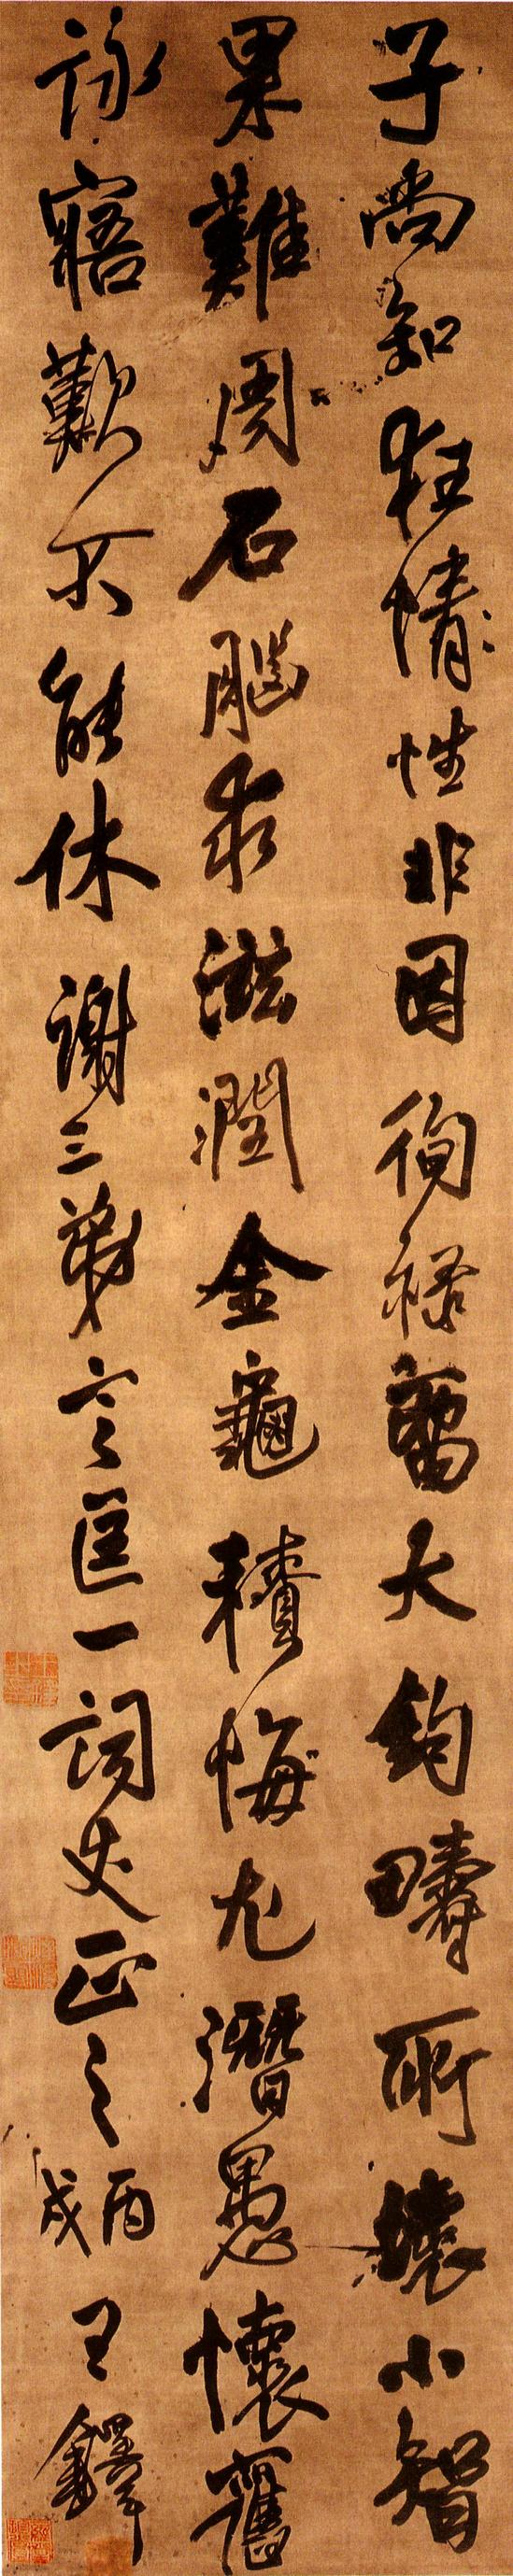 子尚知狂情性非因徇祿留大鈞疇所壞小智
果難周石腦求滋潤金龜積悔尤潛愚懷舊
詠寤歎不能休 謝三弟之匡一詞丈正之 丙戌 王鐸